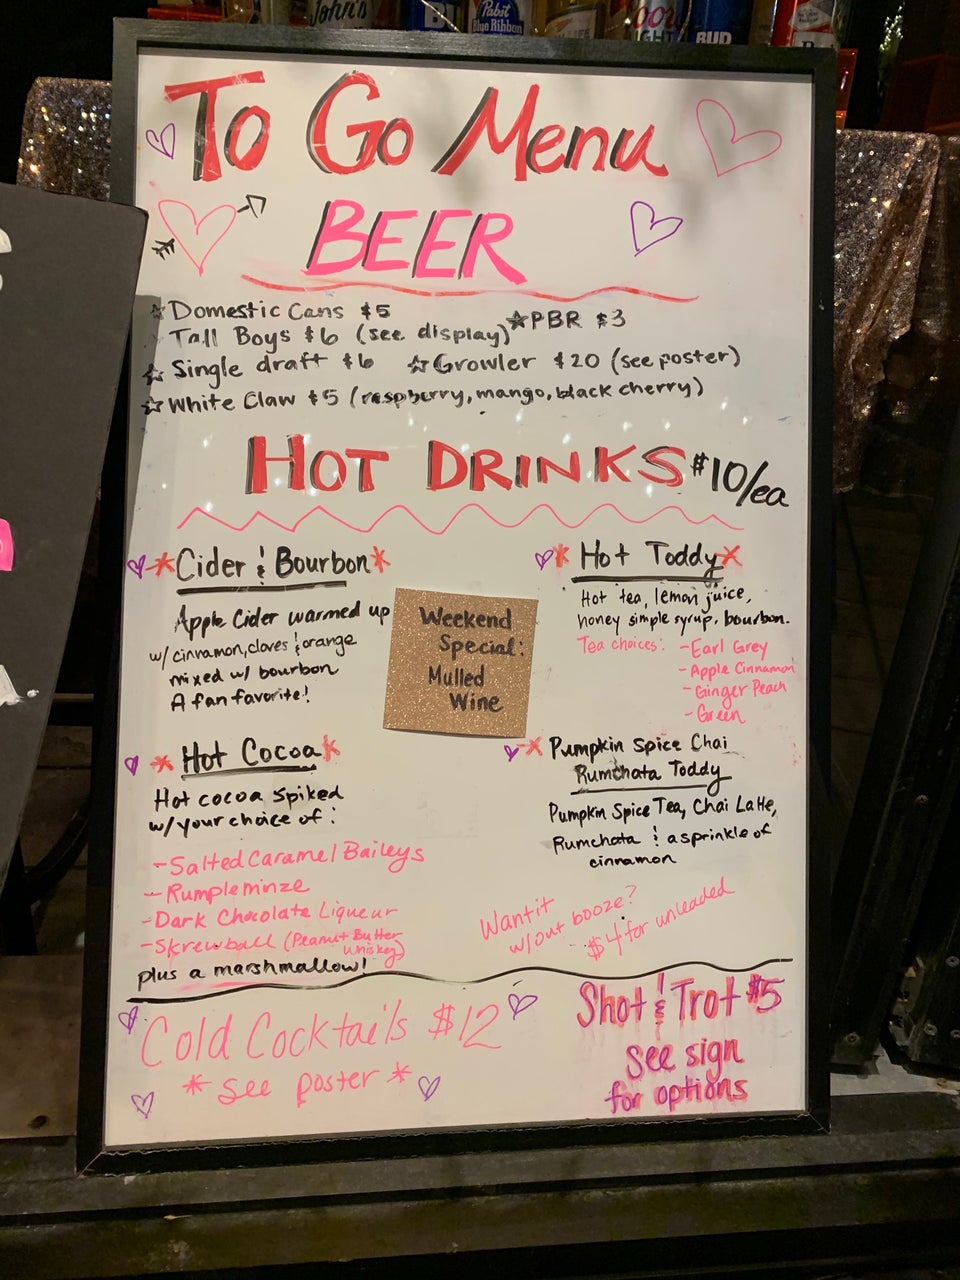 John's
Pabst
Blue Ribbon
LIGHT
BUD
To Go Menu
BEER
☆ Domestic Cans $5
☆ PBR $3
Tall Boys $6 (see display)
☆ Single draft $6
☆ Growler $20 (see poster)
☆ White Claw $5 (raspberry, mango, black cherry)
HOT DRINKS $10/ea
*Cider & Bourbon*
Apple Cider warmed up
w/cinnamon, cloves & orange
mixed w/ bourbon
A fan favorite!
* Hot Toddy *
Hot tea, lemon juice,
honey simple syrup, bourbon.
Tea choices: - Earl Grey
- Apple Cinnamon
- Ginger Peach
- Green
Weekend
Special:
Mulled
Wine
* Hot Cocoa *
Hot cocoa spiked
w/your choice of:
- Salted Caramel Baileys
- Rumpleminze
- Dark Chocolate Liqueur
- Skrewball (Peanut Butter
Whiskey)
plus a marshmallow!
* Pumpkin Spice Chai
Rumchata Toddy
Pumpkin Spice Tea, Chai Latte,
Rumchata & a sprinkle of
cinnamon
Want it
w/out booze?
$4 for unleaded
Cold Cocktails $12
* See poster *
Shot & Trot $5
See sign
for options